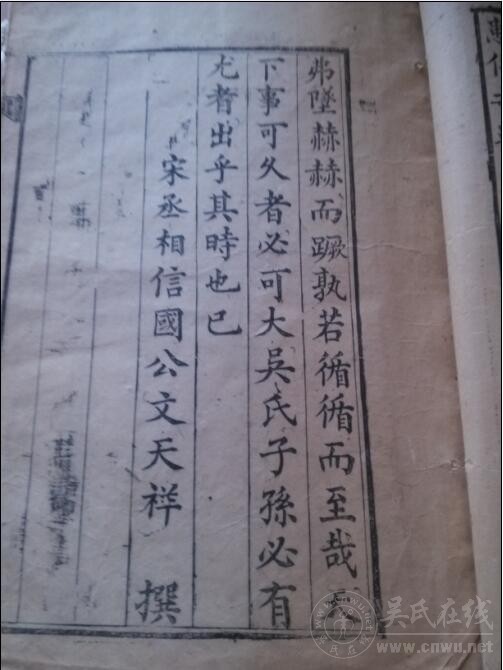 弗墜赫赫而蹶孰若循循而至哉天
下事可久者必可大吳氏子孫必有
尤者出乎其時也已
宋丞相信國公文天祥 撰
吴氏在线
www.cnwu.net